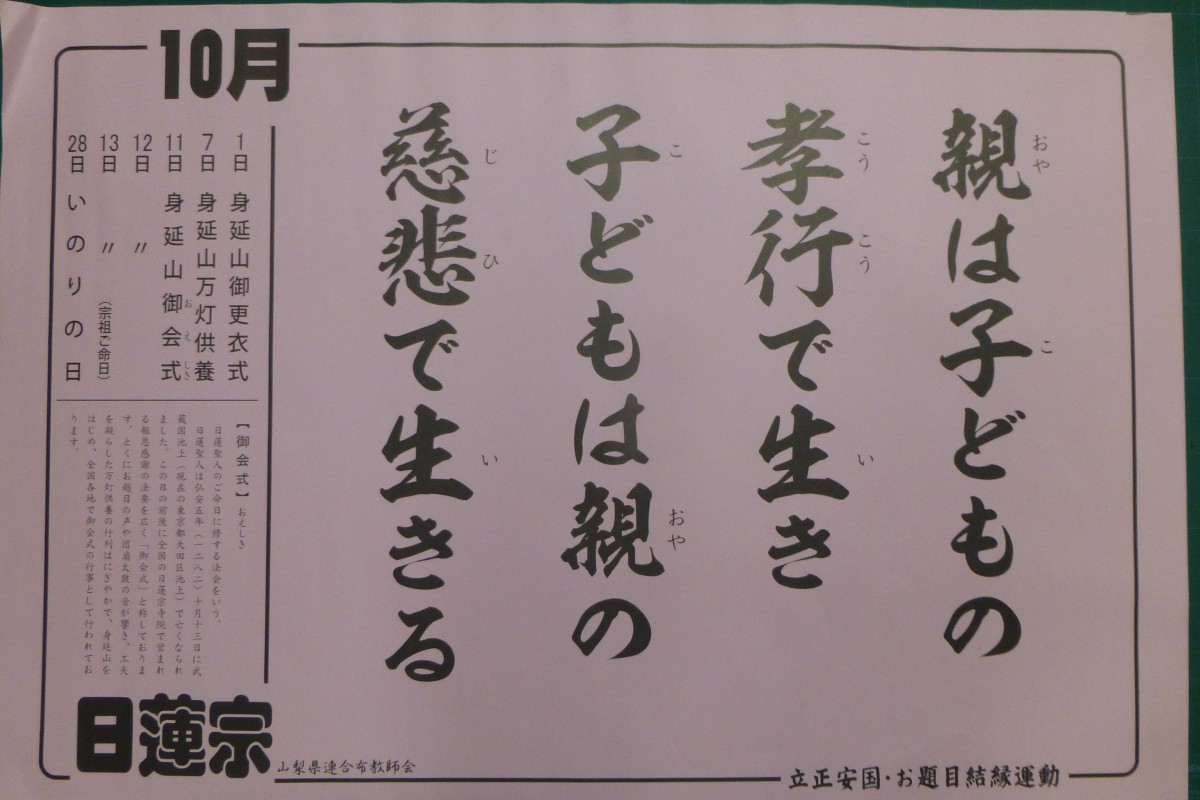 親は子どもの
孝行で生き
子どもは親の
慈悲で生きる
おや
こ
こう
こう
い
こ
おや
じ
ひ
い
10月
1日 身延山御更衣式
7日 身延山万灯供養
11日 身延山御会式
おえしき
12日 〃
13日 〃 (宗祖ご命日)
28日 いのりの日
【御会式】おえしき
日蓮聖人のご命日に修する法会をいう。
日蓮聖人は弘安五年(一二八二)十月十三日に武
蔵国池上(現在の東京都大田区池上)で亡くなられ
ました。この日の前後に全国の日蓮宗寺院で営まれ
る報恩感謝の法要を広く「御会式」と称しておりま
す。とくにお題目の声や団扇太鼓の音が響き、工夫
を凝らした万灯供養の行列はにぎやかで、身延山を
はじめ、全国各地で御会式の行事として行われてお
ります。
日蓮宗
山梨県連合布教師会
立正安国・お題目結縁運動